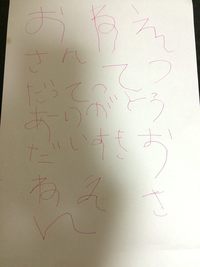 おねえ
さんてつ
だって
ありがとう
だいすきお
ねえさ
ん